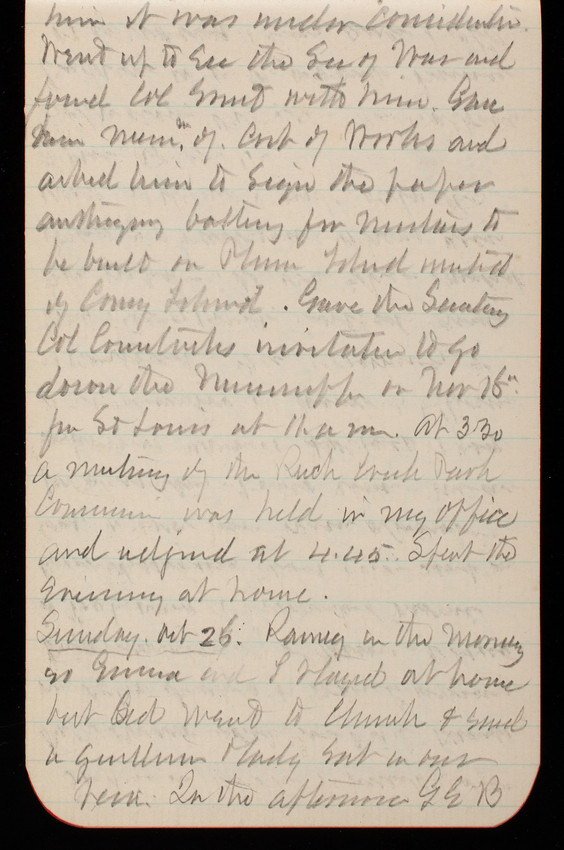 him it was under consideration.
Went up to See the Sec of War and
found Col Grant with him. Gave
him memm of Cost of Works and
asked him to sign the paper
battery for mortars to
be built on Plum Island instead
of Coney Island. Gave the Secretary
Col Comstocks invitation to go
down the Mississippi on Nov 16th
from St Louis at 11 a m. At 3 30
a meeting of the Rock Creek Park
Commission was held in my office
and adjourned at 4.45. Spent the
Evening at home.
Sunday. Oct 26. Raining in the morning
so Emma and I stayed at home
but went to Church &
a gentleman & lady sat in our
pew. In the afternoon G E B